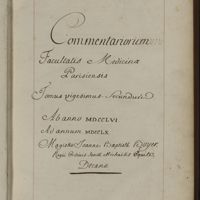 Commentariorum
Facultatis Medicinæ
Parisiensis
Tomus vigesimus Secundus
Ab anno MDCCLVI
Ad annum MDCCLX
Magistro Joanne Baptista Boyer
Regii Ordinis Sancti Michaelis Equite
Decano